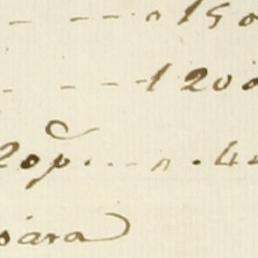 - - - n 150
- - - 1200
20p. . . . n . 4
sára)